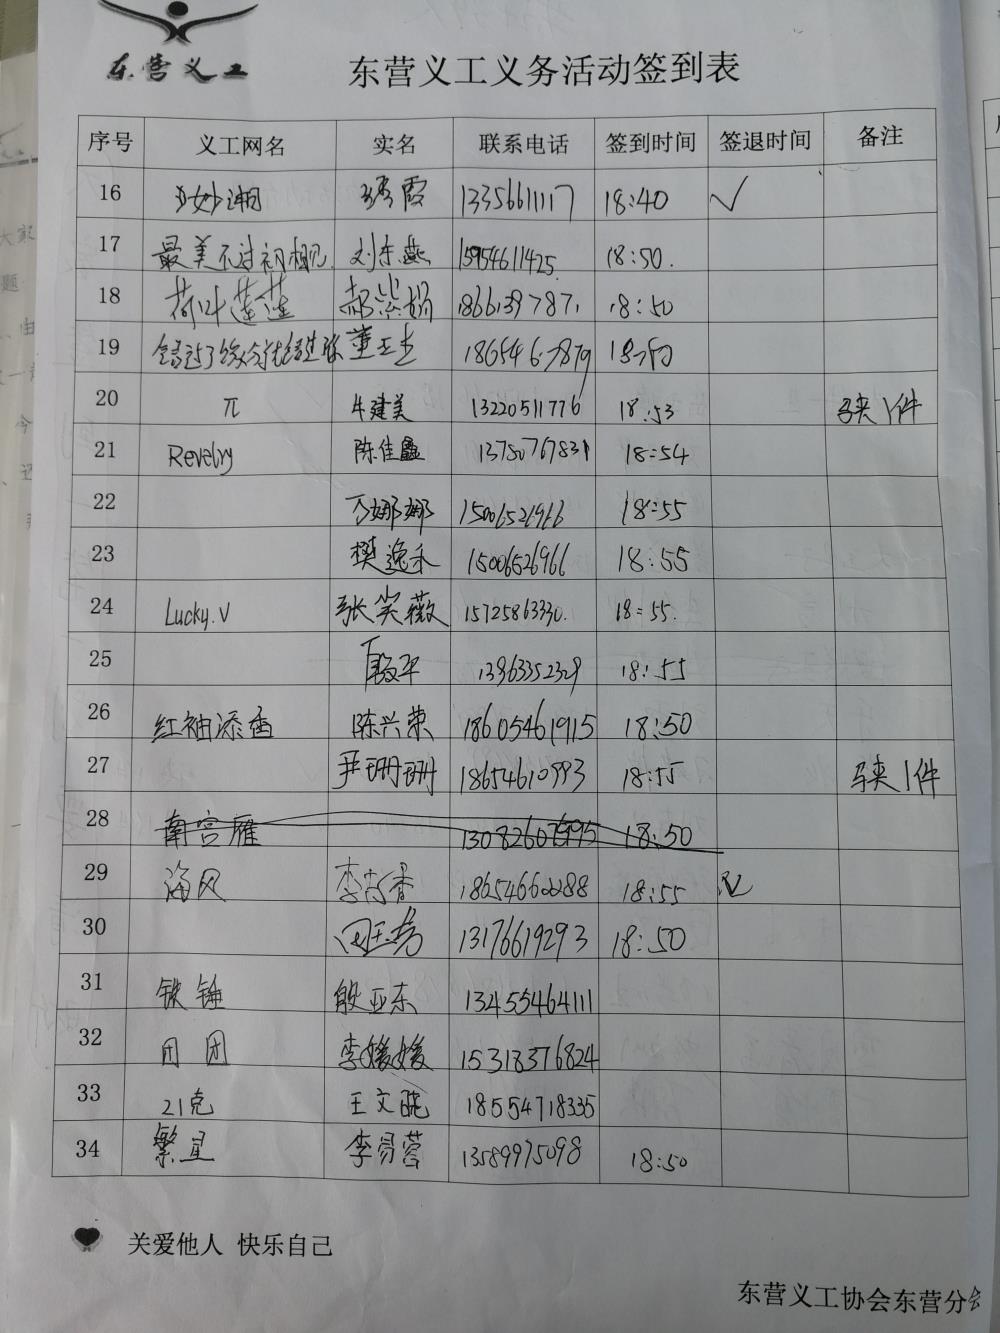 东营义工
东营义工义务活动签到表
序号 义工网名 实名 联系电话 签到时间 签退时间 备注
16 13356611117 18:40 √
17 最美不过初相见 刘东燕 15954611425 18:50
18 荷叶莲莲 18661397871 18:50
19 董玉杰 18:50
20 π 牛建美 13220511776 18:53 马夹1件
21 Revelry 陈佳鑫 13750767831 18:54
22 万娜娜 15006526966 18:55
23 樊逸禾 15006526966 18:55
24 Lucky.V 张笑薇 15725863330 18:55
25 殷平 13963352329 18:55
26 红袖添香 陈兴荣 18605461915 18:50
27 尹珊珊 18654610993 18:55 马夹1件
28 南宫雁 18:50
29 海风 18654660288 18:55
30 13176619293 18:50
31 铁锤 殷亚东 13455464111
32 团团 李媛媛 15318376824
33 21克 王文晓 18554718335
34 繁星 李易蓉 13589975098 18:50
关爱他人 快乐自己
东营义工协会东营分会